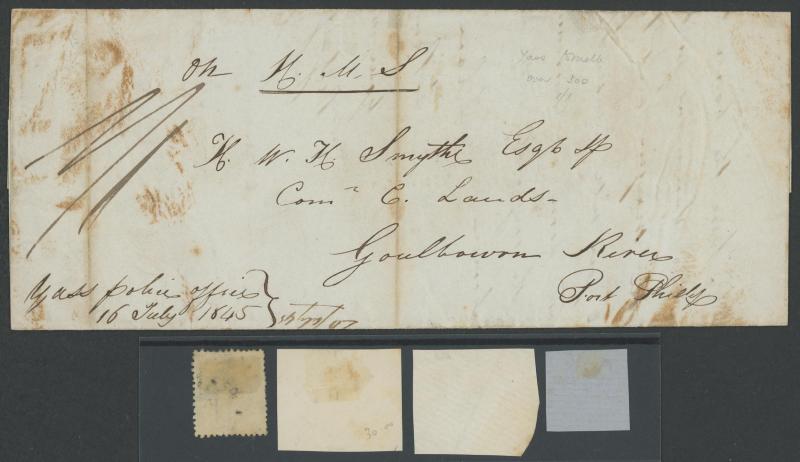 On H. M. S
Yass
over 300
1/1
H. W. H. Smythe Esqr JP
Comr C. Lands -
Goulbowrn River
Port Phillip
Yass police office
16 July 1845
30.00